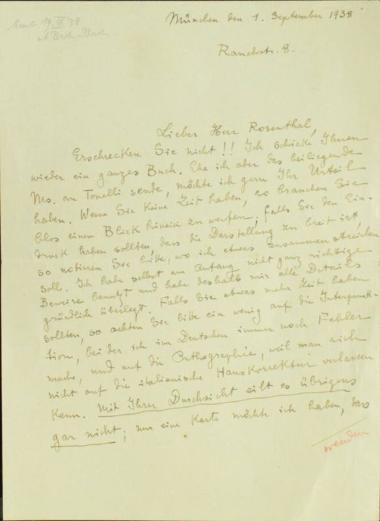 München den 1. September 1938
Rauchstr. 8.
Lieber Herr Rosenthal,
Erschrecken Sie nicht!! Ich schicke Ihnen
wieder ein ganzes Buch. Ehe ich aber das beiliegende
Ms. an Tonelli sende, möchte ich gern Ihr Urteil
haben. Wenn Sie keine Zeit haben, so brauchen Sie
blos einen Blick hinein zu werfen; falls Sie den Ein-
druck haben sollten, dass die Darstellung zu breit ist,
so notieren Sie bitte, wo ich etwas zusammenstreichen
soll. Ich habe selbst am Anfang nicht ganz richtige
Beweise benutzt und habe deshalb mir alle Details
gründlich überlegt. Falls Sie etwas mehr Zeit haben
sollten, so achten Sie bitte ein wenig auf die Interpunk-
tion, bei der ich im Deutschen immer noch Fehler
mache, und auf die Orthographie, weil man sich
nicht auf die italienische Hauskorrektur verlassen
kann. Mit Ihrer Durchsicht eilt es übrigens
gar nicht; nur eine Karte möchte ich haben, dass
wenden